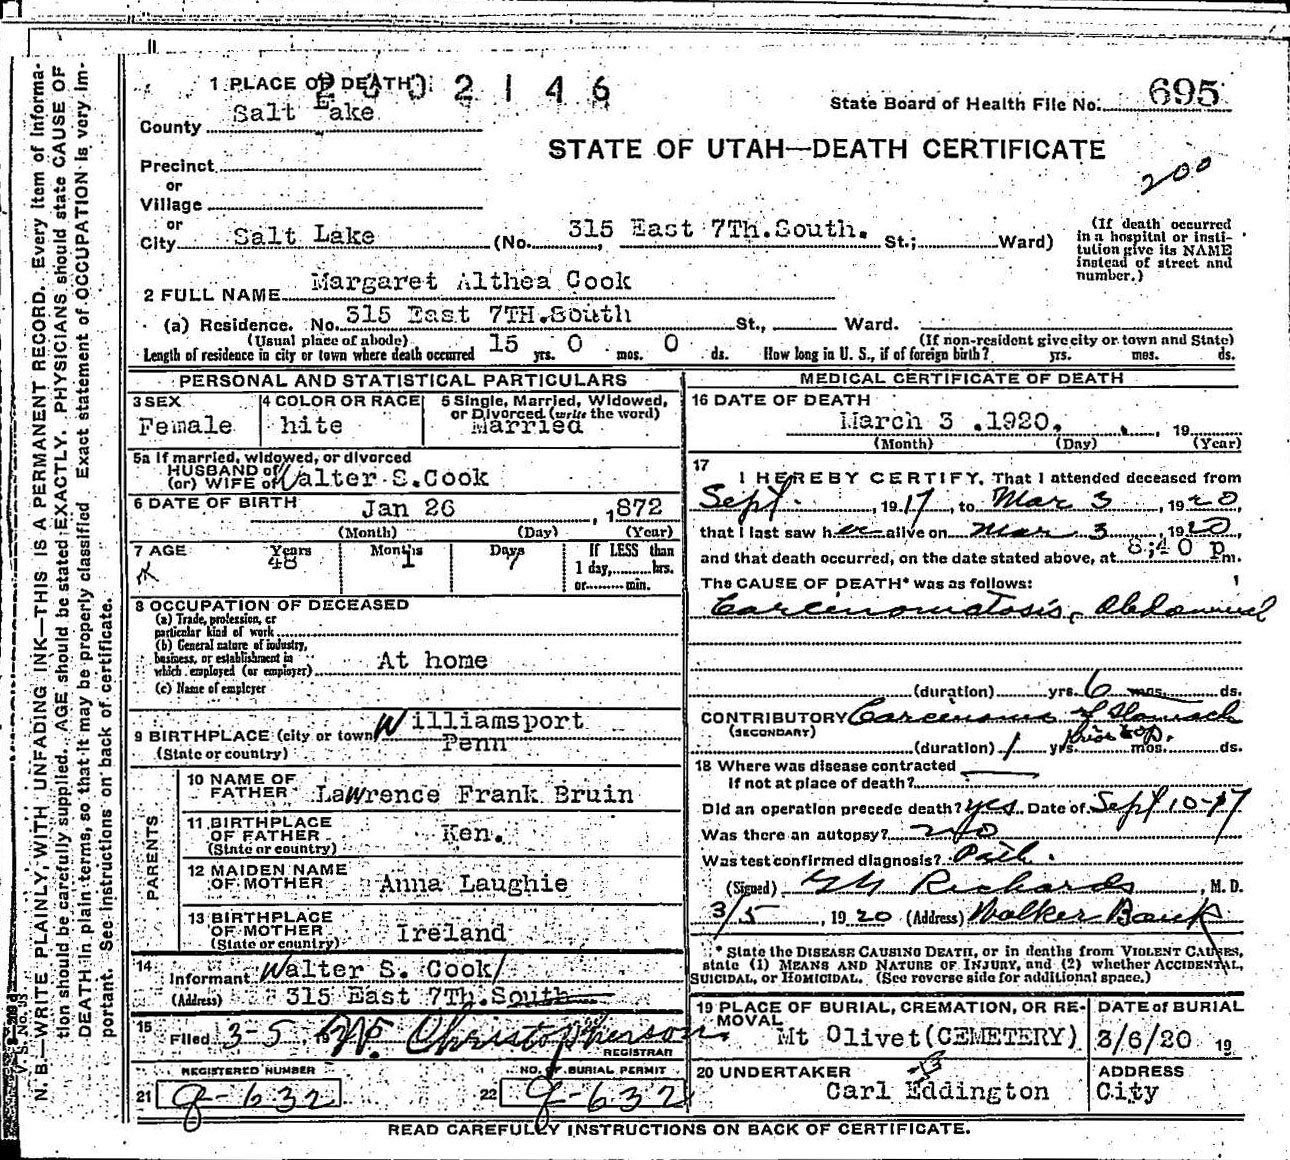 1 PLACE OF DEATH 2 1 4 6
County Salt Lake
State Board of Health File No. 695
STATE OF UTAH—DEATH CERTIFICATE
200
Precinct
or
Village
or
City Salt Lake (No. 315 East 7Th.South. St.; Ward)
(If death occurred in a hospital or insti-
tution give its NAME
instead of street and
number.)
2 FULL NAME Margaret Althea Cook
(a) Residence. No. 315 East 7TH.South St., Ward.
(Usual place of abode) (If non-resident give city or town and State)
Length of residence in city or town where death occurred 15 yrs. 0 mos. 0 ds. How long in U. S., if of foreign birth? yrs. mos. ds.
PERSONAL AND STATISTICAL PARTICULARS
3 SEX Female
4 COLOR OR RACE hite
5 Single, Married, Widowed,
or Divorced (write the word)
Married
5a If married, widowed, or divorced
HUSBAND of
(or) WIFE of Walter S.Cook
6 DATE OF BIRTH Jan 26, 1872
(Month) (Day) (Year)
7 AGE Years 48 Months 1 Days 7
If LESS than
1 day, hrs.
or min.
8 OCCUPATION OF DECEASED
(a) Trade, profession, or
particular kind of work
(b) General nature of industry,
business, or establishment in
which employed (or employer) At home
(c) Name of employer
9 BIRTHPLACE (city or town) Williamsport
(State or country) Penn
PARENTS
10 NAME OF
FATHER Lawrence Frank Bruin
11 BIRTHPLACE
OF FATHER Ken.
(State or country)
12 MAIDEN NAME
OF MOTHER Anna Laughie
13 BIRTHPLACE
OF MOTHER Ireland
(State or country)
14 Informant Walter S. Cook
(Address) 315 East 7Th.South
15 Filed 3-5 19 W. Christopherson
REGISTRAR
REGISTERED NUMBER
21 G-632
NO. OF BURIAL PERMIT
22 G-632
MEDICAL CERTIFICATE OF DEATH
16 DATE OF DEATH
March 3 .1920. , 19
(Month) (Day) (Year)
17 I HEREBY CERTIFY, That I attended deceased from
Sept. , 1917, to Mar 3, 1920,
that I last saw her alive on Mar 3, 1920,
and that death occurred, on the date stated above, at 8;40 p m.
The CAUSE OF DEATH* was as follows:
Carcinomatosis, Abdominal
(duration) yrs. 6 mos. ds.
CONTRIBUTORY Carcinoma of Stomach
(SECONDARY) Prior to op.
(duration) 1 yrs. mos. ds.
18 Where was disease contracted
If not at place of death?
Did an operation precede death? yes Date of Sept 10-17
Was there an autopsy? no
Was test confirmed diagnosis? Path.
(Signed) Richards, M. D.
3/5, 1920 (Address) Walker Bank
* State the DISEASE CAUSING DEATH, or in deaths from VIOLENT CAUSES,
state (1) MEANS AND NATURE OF INJURY, and (2) whether ACCIDENTAL,
SUICIDAL, or HOMICIDAL. (See reverse side for additional space.)
19 PLACE OF BURIAL, CREMATION, OR RE-
MOVAL
Mt Olivet(CEMETERY)
DATE of BURIAL
3/6/20 19
20 UNDERTAKER
Carl Eddington
ADDRESS
City
READ CAREFULLY INSTRUCTIONS ON BACK OF CERTIFICATE.
V. S. No.
N. B.—WRITE PLAINLY, WITH UNFADING INK—THIS IS A PERMANENT RECORD. Every item of informa-
tion should be carefully supplied. AGE should be stated EXACTLY. PHYSICIANS should state CAUSE OF
DEATH in plain terms, so that it may be properly classified. Exact statement of OCCUPATION is very im-
portant. See instructions on back of certificate.